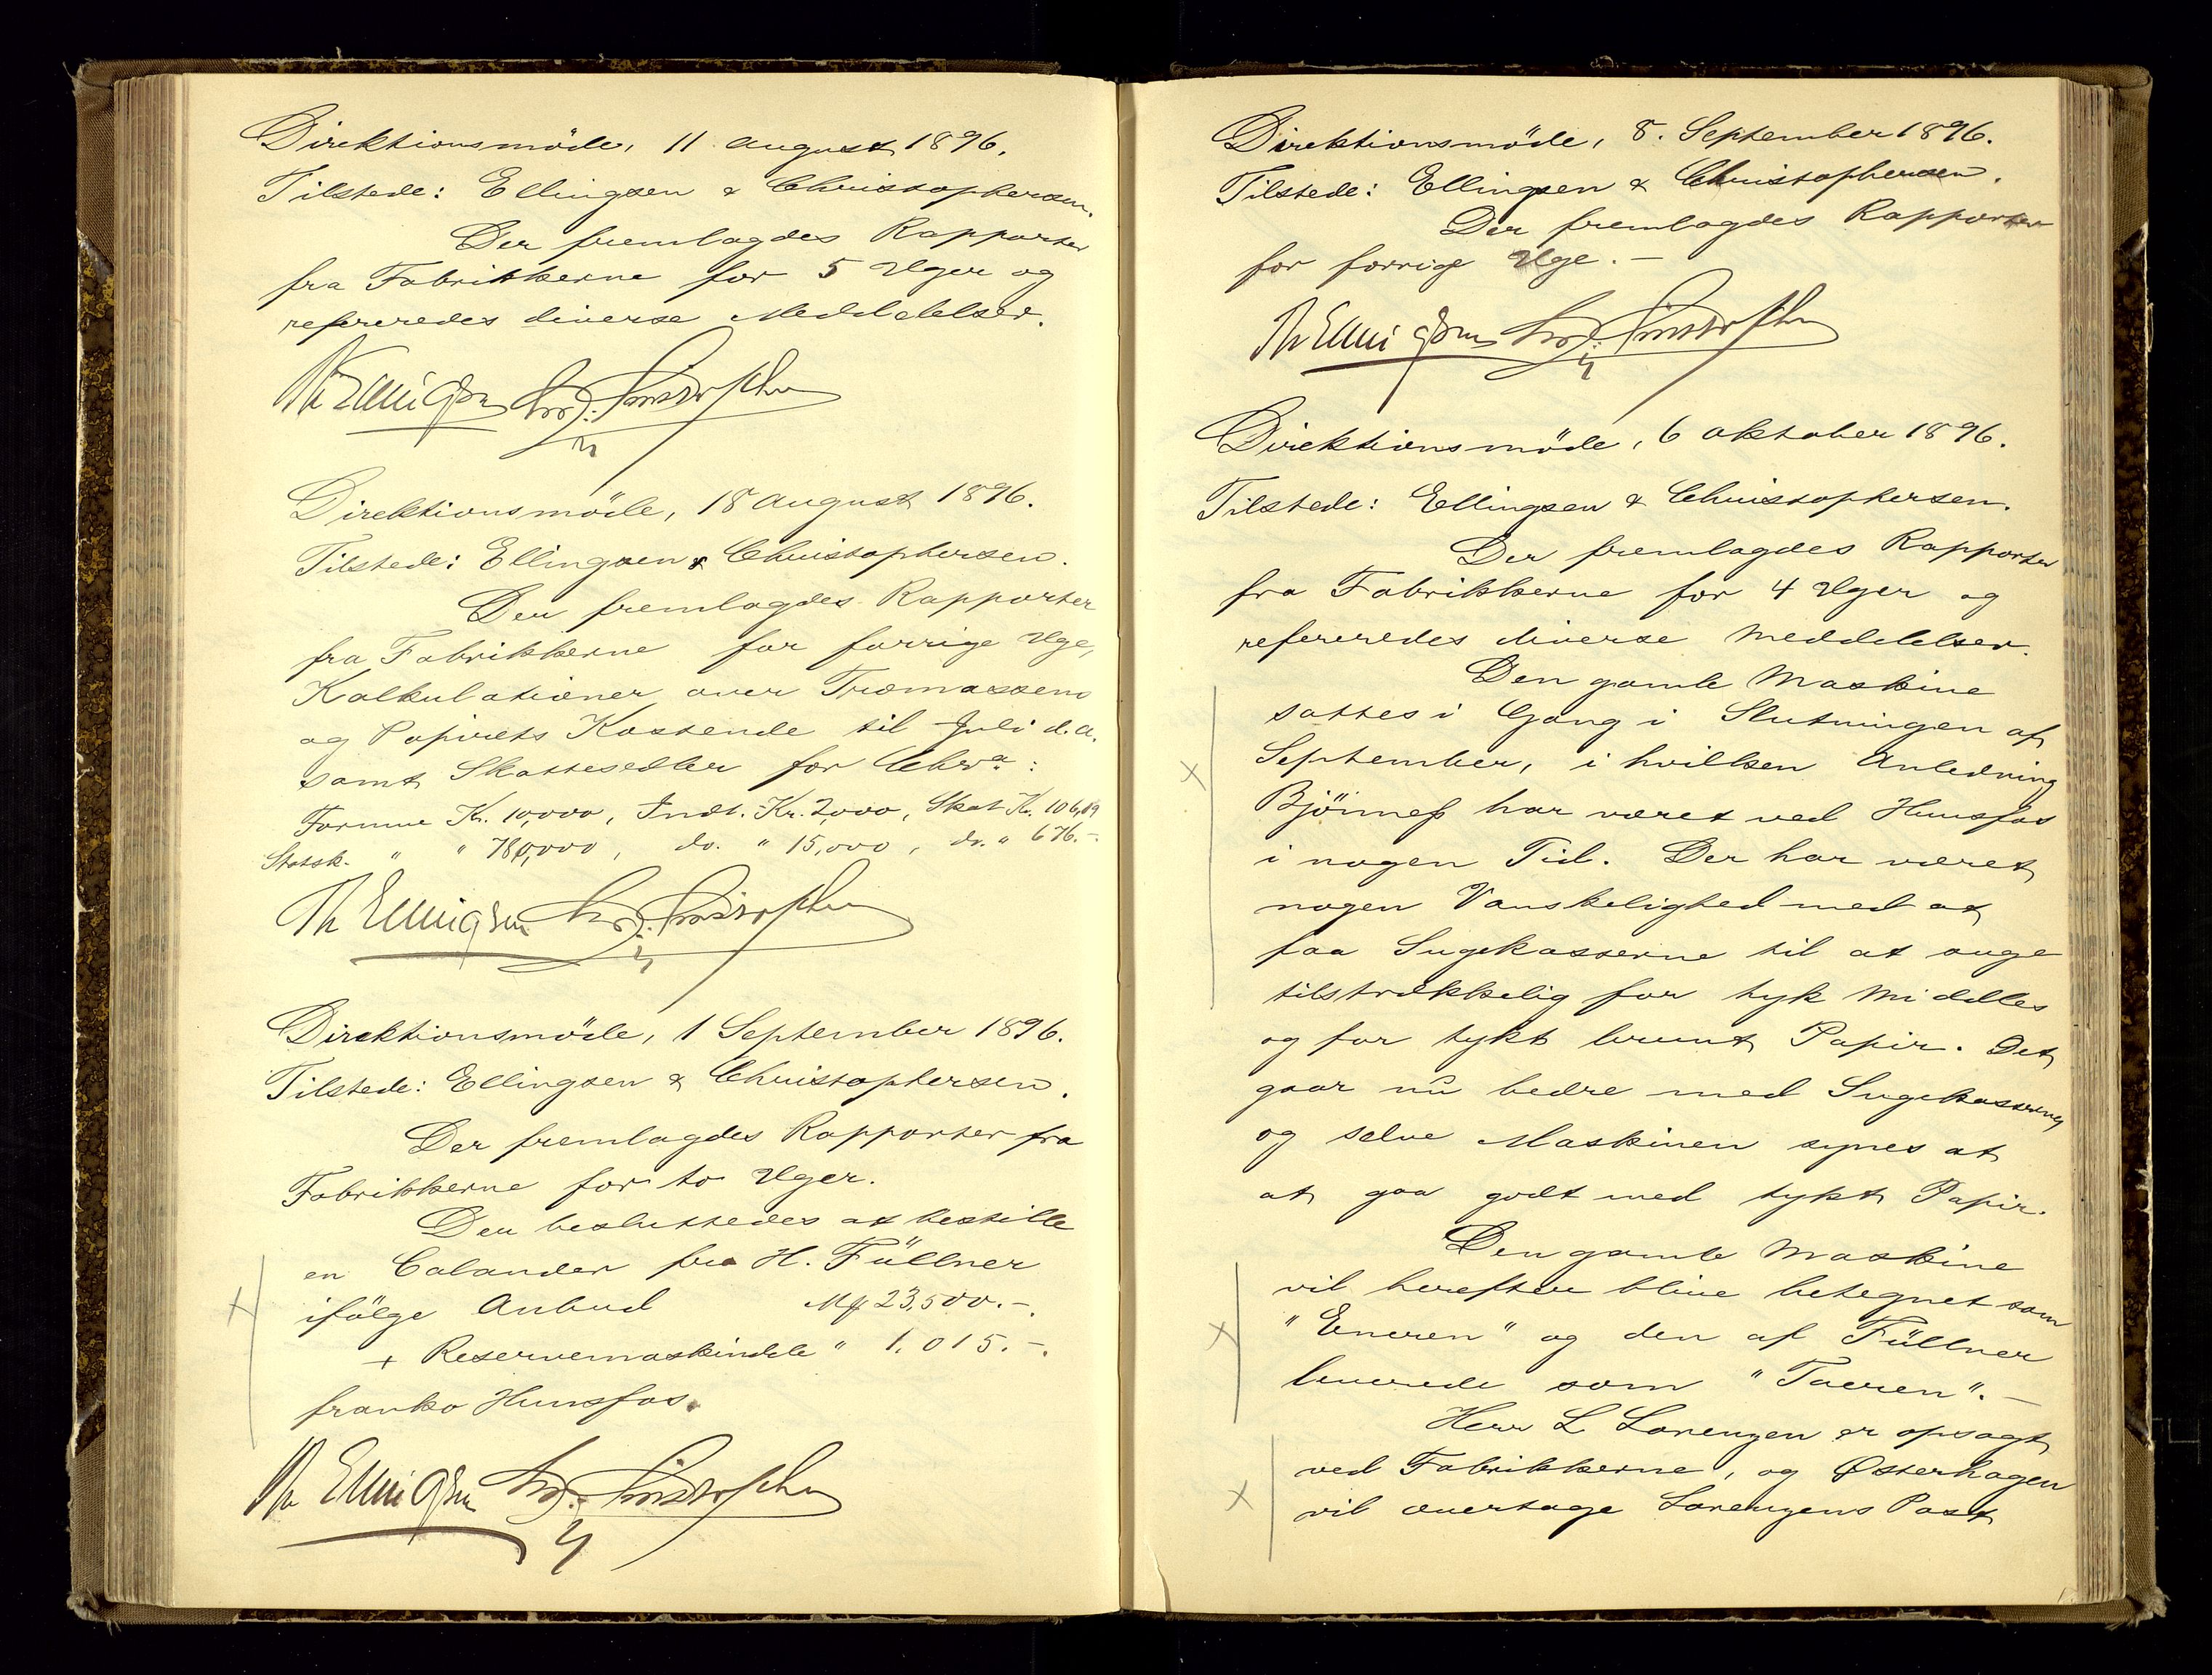 Direktionsmöde, 11 August 1896.
Tilstede: Ellingsen & Christophersen.
Der fremlagdes Rapporter
fra Fabrikkerne for 5 Uger og
refereredes diverse Meddelelser.
Th Ellingsen Chr. Christophersen
Direktionsmöde, 18 August 1896.
Tilstede: Ellingsen & Christophersen.
Der fremlagdes Rapporter
fra Fabrikkerne for forrige Uge,
Kalkulationer over Træmassens
og Papirets Kostende til Juli d.a.
samt Skattesedler for Chra:
Formue Kr. 10,000, Indt. Kr. 2,000, Skat Kr. 106,89
Statssk. " " 780,000, do. " 15,000, do. " 676.-
Th Ellingsen Chr. Christophersen
Direktionsmöde, 1 September 1896.
Tilstede: Ellingsen & Christophersen.
Der fremlagdes Rapporter fra
Fabrikkerne for to Uger.
Der besluttedes at bestille
en Calander fra H. Füllner
ifölge Anbud Mk 23,500.-.
+ Reservemaskindele " 1.015.-.
franko Hunsfos.
Th Ellingsen Chr. Christophersen
Direktionsmöde, 8. September 1896.
Tilstede: Ellingsen & Christophersen.
Der fremlagdes Rapporter
for forrige Uge. -
Th Ellingsen Chr. Christophersen
Direktionsmöde, 6 Oktober 1896.
Tilstede: Ellingsen & Christophersen.
Der fremlagdes Rapporter
fra Fabrikkerne for 4 Uger og
refereredes diverse Meddelelser.
Den gamle Maskine
sattes i Gang i Slutningen af
September, i hvilken Anledning
har været ved Hunsfos
i nogen Tid. Der har været
nogen Vanskelighed med at
faa Sugekasserne til at suge
tilstrækkelig for tyk Middles
og for tykt brunt Papir. Det
gaar nu bedre med Sugekasserne
og selve Maskinen synes at
at gaa godt med tykt Papir.
Den gamle Maskine
vil herefter blive betegnet som
"Eneren" og den af Füllner
leverede som "Toeren". -
Herr L Lorenzen er opsagt
ved Fabrikkerne, og Østerhagen
vil overtage Lorenzens Post